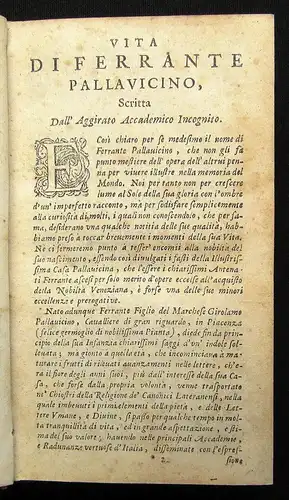 VITA
DI FERRANTE
PALLAVICINO,
Scritta
Dall' Aggirato Accademico Incognito.
E Così chiaro per se medesimo il nome di
Ferrante Pallavicino, che non gli fà
punto mestiere dell' opera dell' altrui pen-
na per vivere illustre nella memoria del
Mondo. Noi per tanto non per crescere
lume al Sole della sua gloria con l'ombre
d'un' imperfetto racconto, ma per sodisfare semplicemente
alla curiosità di molti, i quali non conoscendolo, che per fa-
ma, desiderano una qualche notitia delle sue qualità, hab-
biamo preso à toccar brevemente i momenti della sua Vita.
Nè ci fermeremo punto à tesser encomii alla nobiltà del
suo nascimento, essendo così divulgati i fasti della Illustris-
sima Casa Pallavicina, che l'essere i chiarissimi Antena-
ti Ferrante ascesi per solo merito d'opere eccelse all'acquisto
della Nobiltà Veneziana, è forse una delle sue minori
eccellenze e prerogative.
Nato adunque Ferrante Figlio del Marchese Girolamo
Pallavicino, Cavalliere di gran riguardo, in Piacenza
(felice germoglio di nobilissima Pianta), diede fin da prin-
cipio della sua Infanzia chiarissimi saggi d'un' indole sol-
levata; ma gionto à quella età, che incominciava à ma-
turare i frutti di rilevati avanzamenti nelle lettere, ch'e-
ra il fiore degli anni suoi, più dall' interesse della sua Ca-
sa, che forse dalla propria volontà, venne trasportato
ne' Chiostri della Religione de' Canonici Lateranensi, nella
quale imbevuto i primi elementi della pietà, e delle Lette-
re Umane, e Divine, si passò per qualche tempo in mol-
ta tranquillità di vita, ed in grande aspettazione, e sti-
ma del suo valore; havendo nelle principali Accademie, e
Radunanze vertuose d'Italia, disseminate con l'espres-
sione